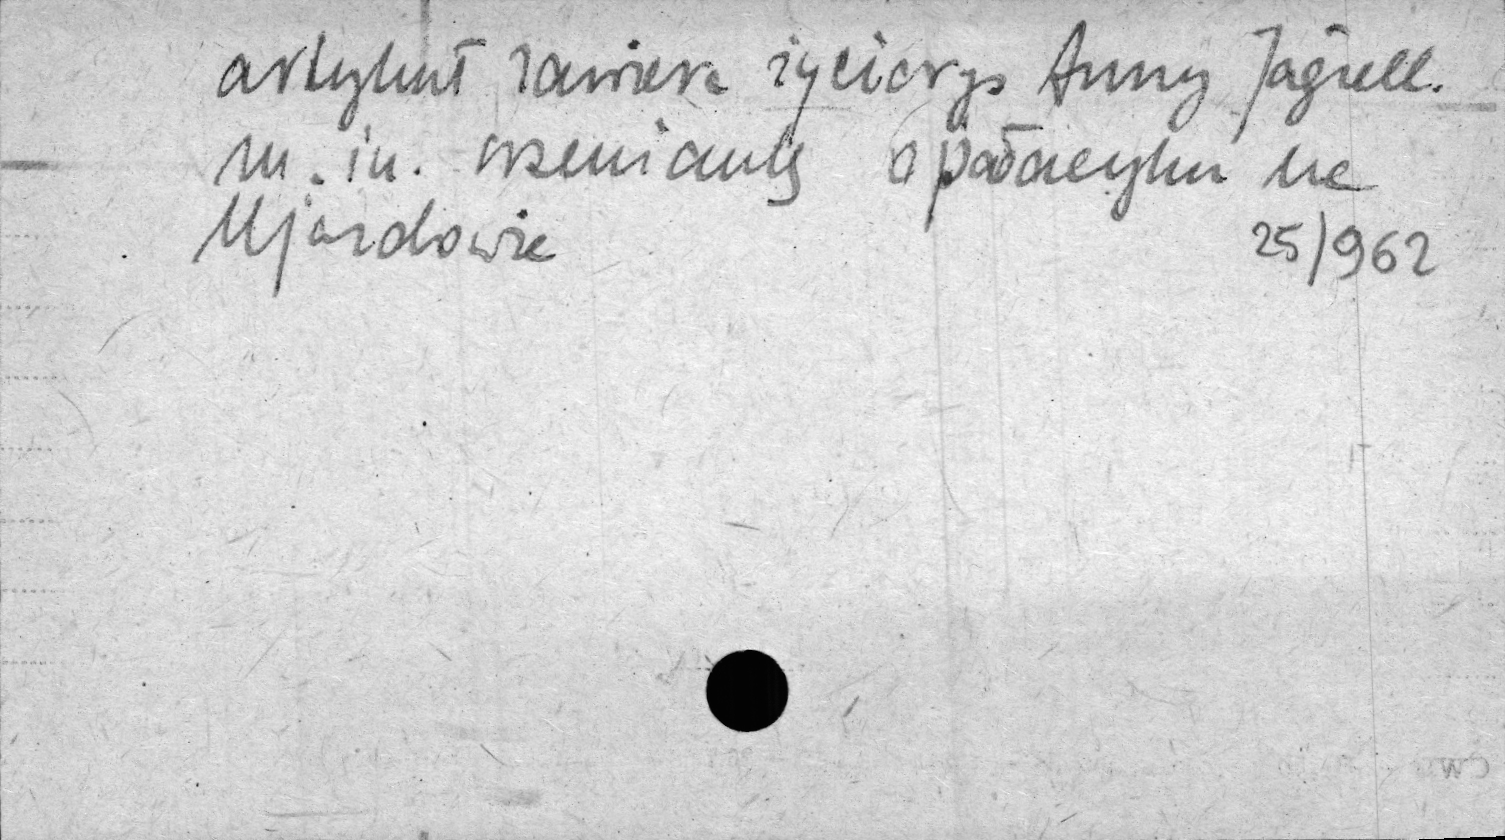 artykuł zawiera życiorys Anny Jagiell.
m. in. wzmianky o pałacyku na
Ujazdowie
25/962